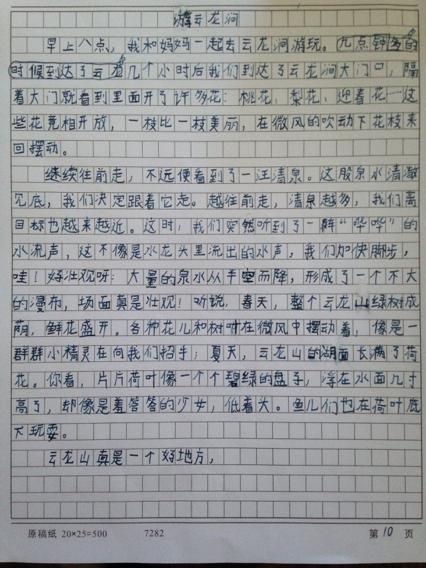 游云龙涧
早上八点，我和妈妈一起去云龙涧游玩。九点钟多的
时候到达了云龙几个小时后我们到达了云龙涧大门口，隔
着大门就看到里面开了许多花：桃花、梨花、迎春花…这
些花竞相开放，一枝比一枝美丽，在微风的吹动下花枝来
回摆动。
继续往前走，不远便看到了一汪清泉。这股泉水清澈
见底，我们决定跟着它走。越往前走，清泉越多，我们离
目标也越来越近。这时，我们突然听到了一解“哗哗”的
水流声，这不像是水龙头里流出的水声，我们加快脚步，
哇！好壮观呀：大量的泉水从半空而降，形成了一个不大
的瀑布，场面真是壮观！听说，春天，整个云龙山绿树成
荫，鲜花盛开。各种花儿和树叶在微风中摆动着，像是一
群群小精灵在向我们招手；夏天，云龙山的湖面长满了荷
花。你看，片片荷叶像一个个碧绿的盘子，浮在水面几寸
高了，却像是羞答答的少女，低着大。鱼儿们也在荷叶底
下玩耍。
云龙山真是一个好地方，
原稿纸 20×25=500 7282 第 10 页